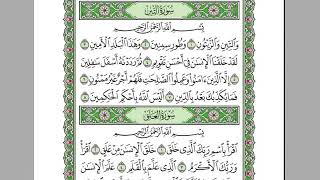 سورة التين
بسم الله الرحمن الرحيم
والتين والزيتون ١ وطور سينين ٢ وهذا البلد الأمين ٣
لقد خلقنا الإنسن في أحسن تقويم ٤ ثم رددنه أسفل سفلين ٥
إلا الذين ءامنوا وعملوا الصلحت فلهم أجر غير ممنون ٦
فما يكذبك بعد بالدين ٧ أليس الله بأحكم الحكمين ٨
سورة العلق
بسم الله الرحمن الرحيم
اقرأ باسم ربك الذي خلق ١ خلق الإنسن من علق ٢ اقرأ
وربك الأكرم ٣ الذي علم بالقلم ٤ علم الإنسن